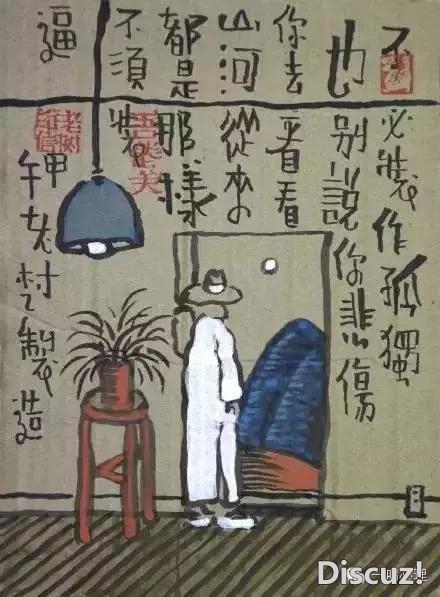 不必裝作孤獨
也別說你悲傷
你去看看
山河從來
都是那樣
不須裝
逼 甲
午老村製造
Discuz!